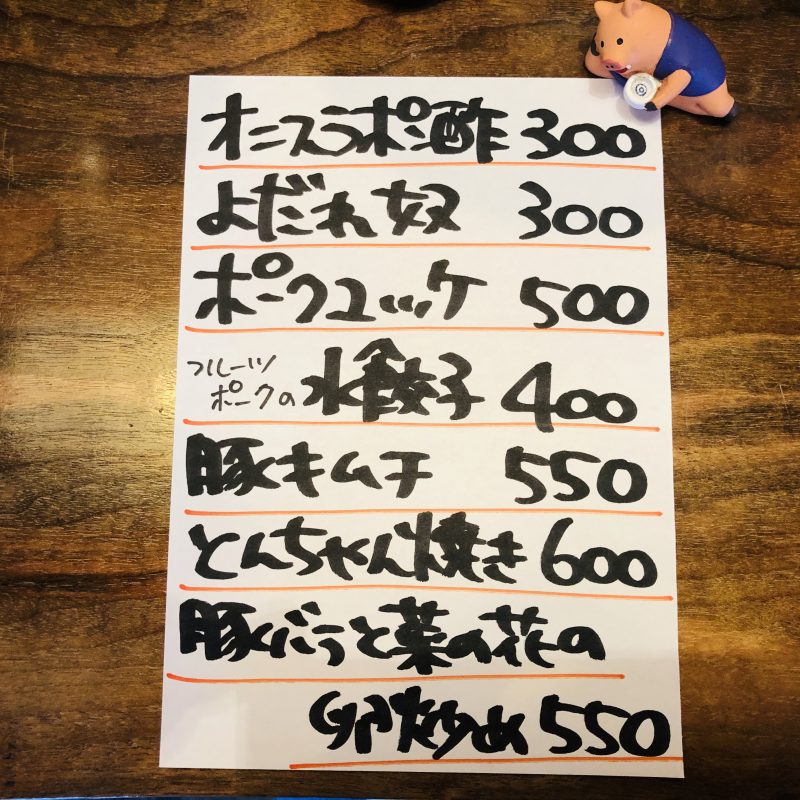 オニスラポン酢 300
よだれ奴 300
ポークユッケ 500
フルーツ
ポークの 水餃子 400
豚キムチ 550
とんちゃん焼き 600
豚バラと菜の花の
卵炒め 550